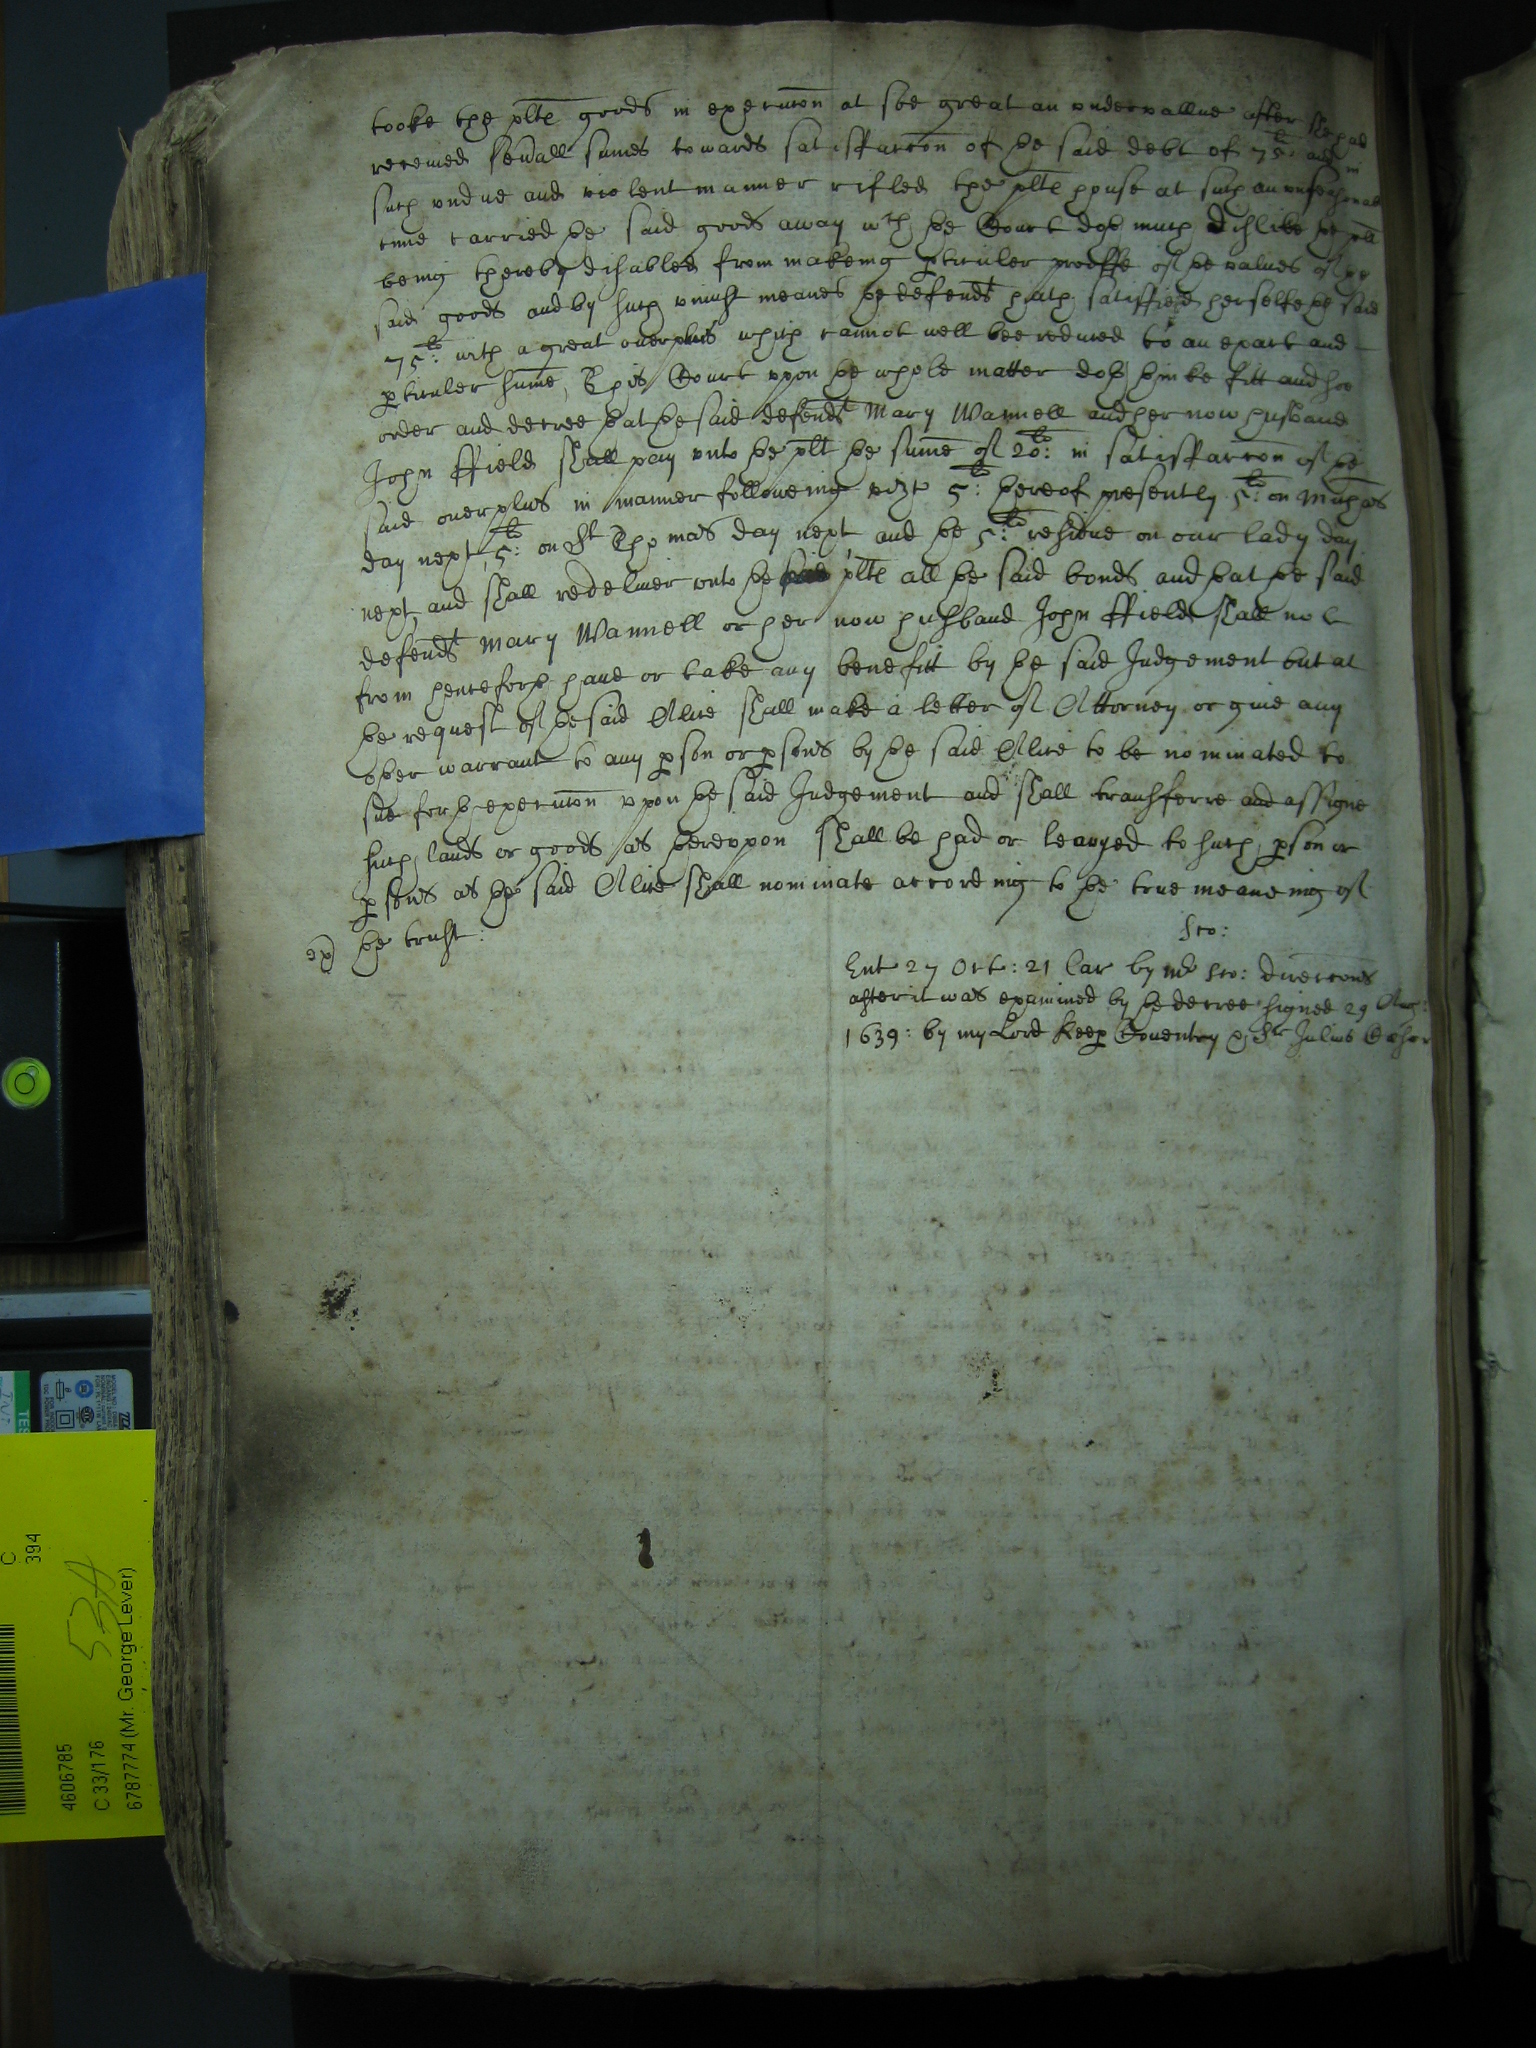 tooke the plte goods in execucon at soe great an undervallue after shee had
received sevall sumes towards satisffaccon of the said debt of 75li: and in
such undue and violent manner rifled the plte house at such an unseasonable
time carried the said goods away wch the Court doth much dislike the plt
being thereby disabled from makeing pticuler prooffe of the values of the
said goods and by such uniust meanes the defendt hath satisffied herselfe the said
75li: with a great overplus which cannot well bee reduced to an exact and
pticuler sume, This Court upon the whole matter doth thinke fitt and soe
order and decree that the said defendt Mary Wannell and her now husband
John Ffield shall pay unto the plt the sume of 20li: in satisffaccon of the
said overplus in manner followeing vizt 5li: thereof presently 5li: on Michas
day next, 5li: on St Thomas day next and the 5li: residue on our lady day
next and shall redeliver unto the plte all the said bonds and that the said
defendt Mary Wannell or her now husband John Ffield shall not
from henceforth have or take any benefitt by the said Judgement but at
the request of the said Alice shall make a letter of Attorney or give any
other warrant to any pson or psons by the said Alice to be nominated to
sue forth execucon upon the said Judgement and shall transferre and assigne
such lands or goods as thereupon shall be had or leavyed to such pson or
psons as the said Alice shall nominate according to the true meaneing of
the trust:
Ent 27 Oct: 21 Car by direccons
after it was examined by the decree signed 29 Aug:
1639: by my Lord Keep Coventry & Sr Julius Cæsar
C
394
53A
4606785
C 33/176
6787774 (Mr. George Lever)